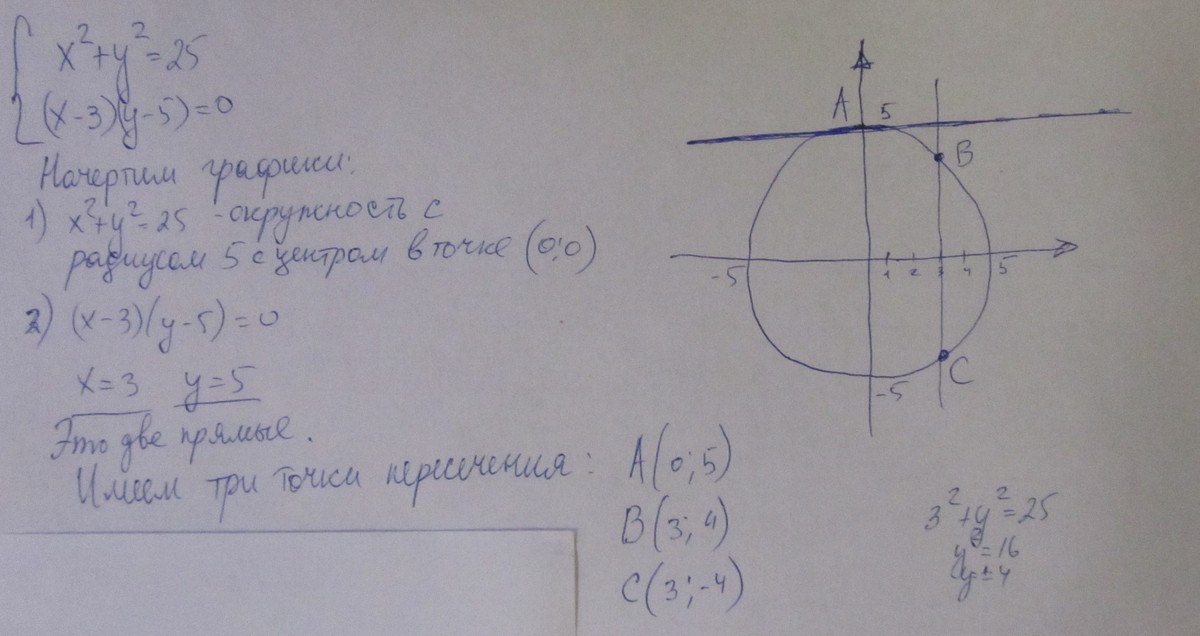 x²+y²=25
(x-3)(y-5)=0
Начертим графики:
1) x²+y²=25 - окружность с
радиусом 5 с центром в точке (0;0)
2) (x-3)(y-5)=0
x=3 y=5
Это две прямые.
Имеем три точки пересечения: A(0;5)
B(3;4)
C(3;-4)
3²+y²=25
y²=16
y=±4
A 5
B
-5 1 2 3 4 5
C
-5